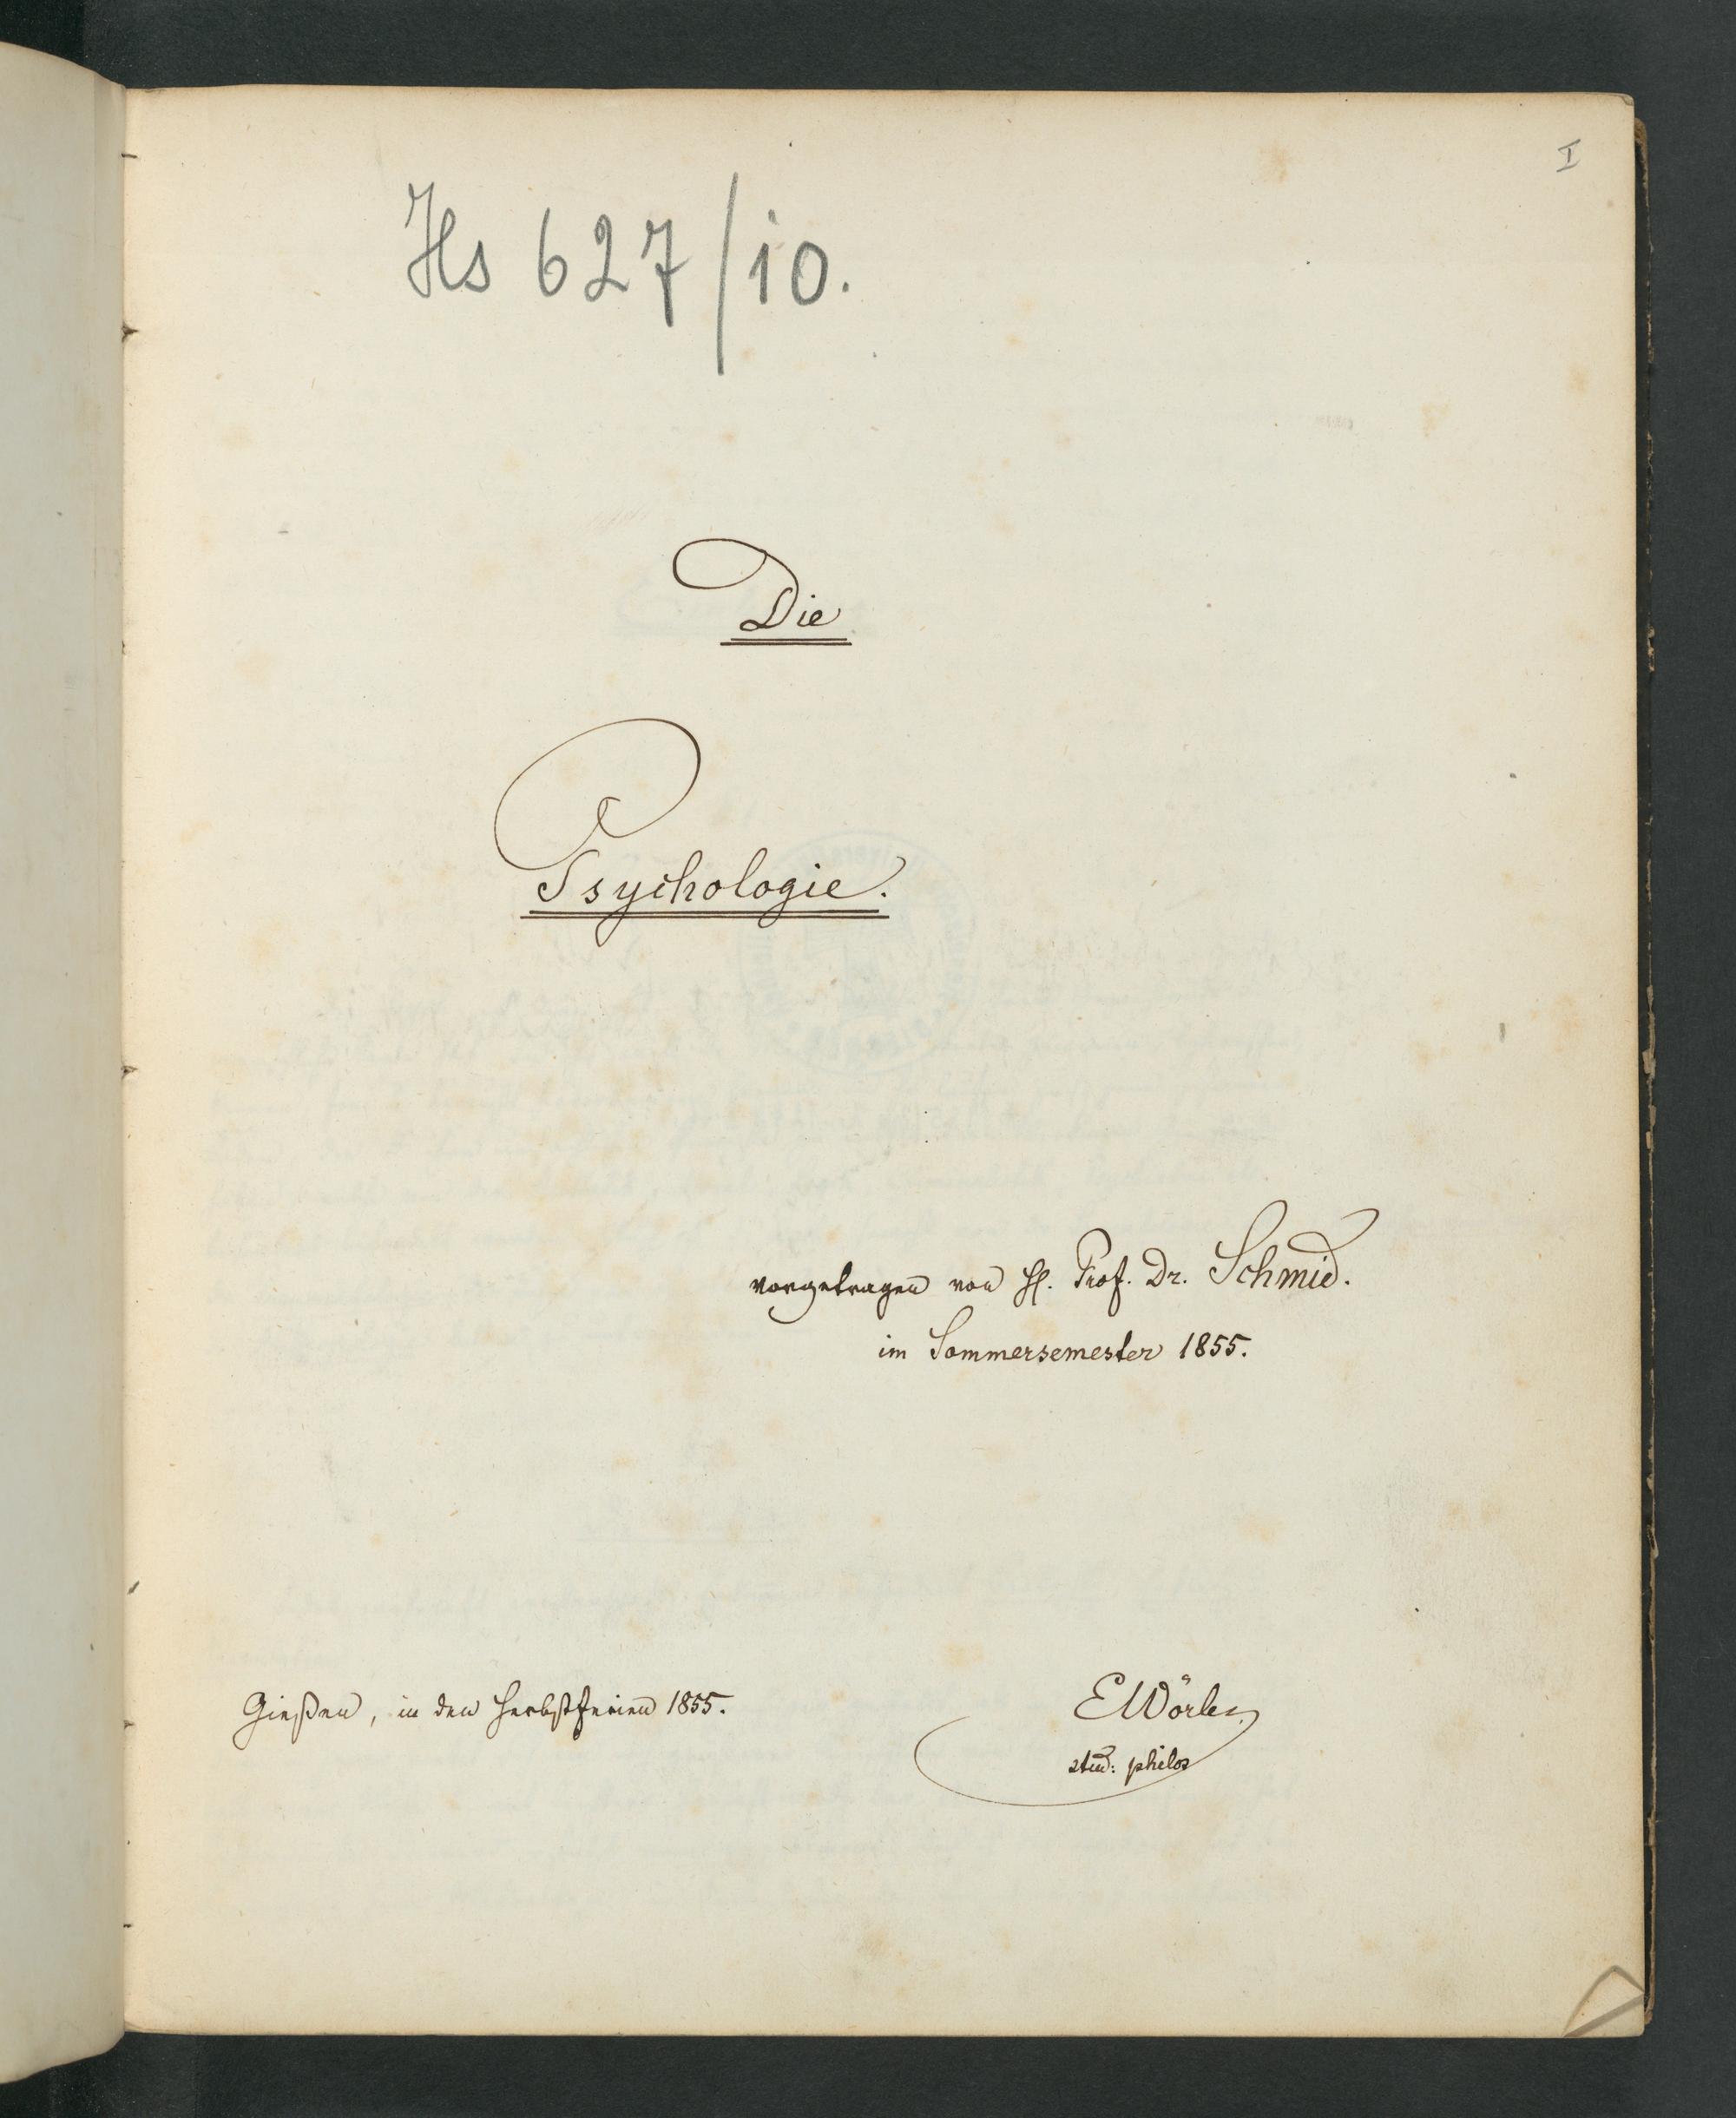 I
Hs 627/10.
Die
Psychologie.
vorgetragen von H. Prof. Dr. Schmid.
im Sommersemester 1855.
Gießen, in den Herbstferien 1855.
EWörler
stud: philos